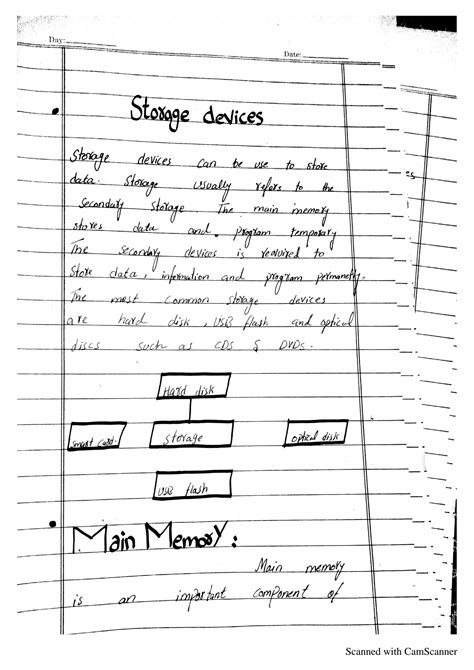 Day:
Date:
Storage devices
Storage devices can be use to store
data. Storage usually refers to the
Secondary Storage The main memory
stores data and program temporary
The Secondary devices is required to
Store data, information and program permanetly.
The most common storage devices
are hard disk, USB flash and optical
discs such as CDS & DVDs.
Hard disk
smart card.
storage
optical disk
USB flash
Main Memory:
Main memory
is an important component of
Scanned with CamScanner